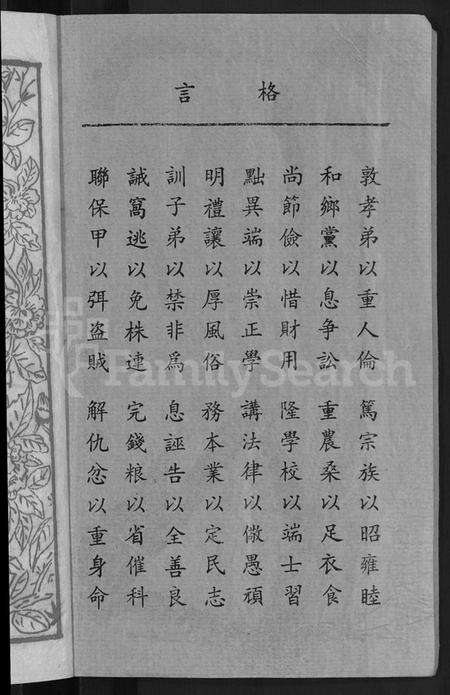 格言
敦孝弟以重人倫 篤宗族以昭雍睦
和鄉黨以息爭訟 重農桑以足衣食
尚節儉以惜財用 隆學校以端士習
黜異端以崇正學 講法律以儆愚頑
明禮讓以厚風俗 務本業以定民志
訓子弟以禁非為 息誣告以全善良
誡窩逃以免株連 完錢粮以省催科
聯保甲以弭盜賊 解仇忿以重身命
FamilySearch